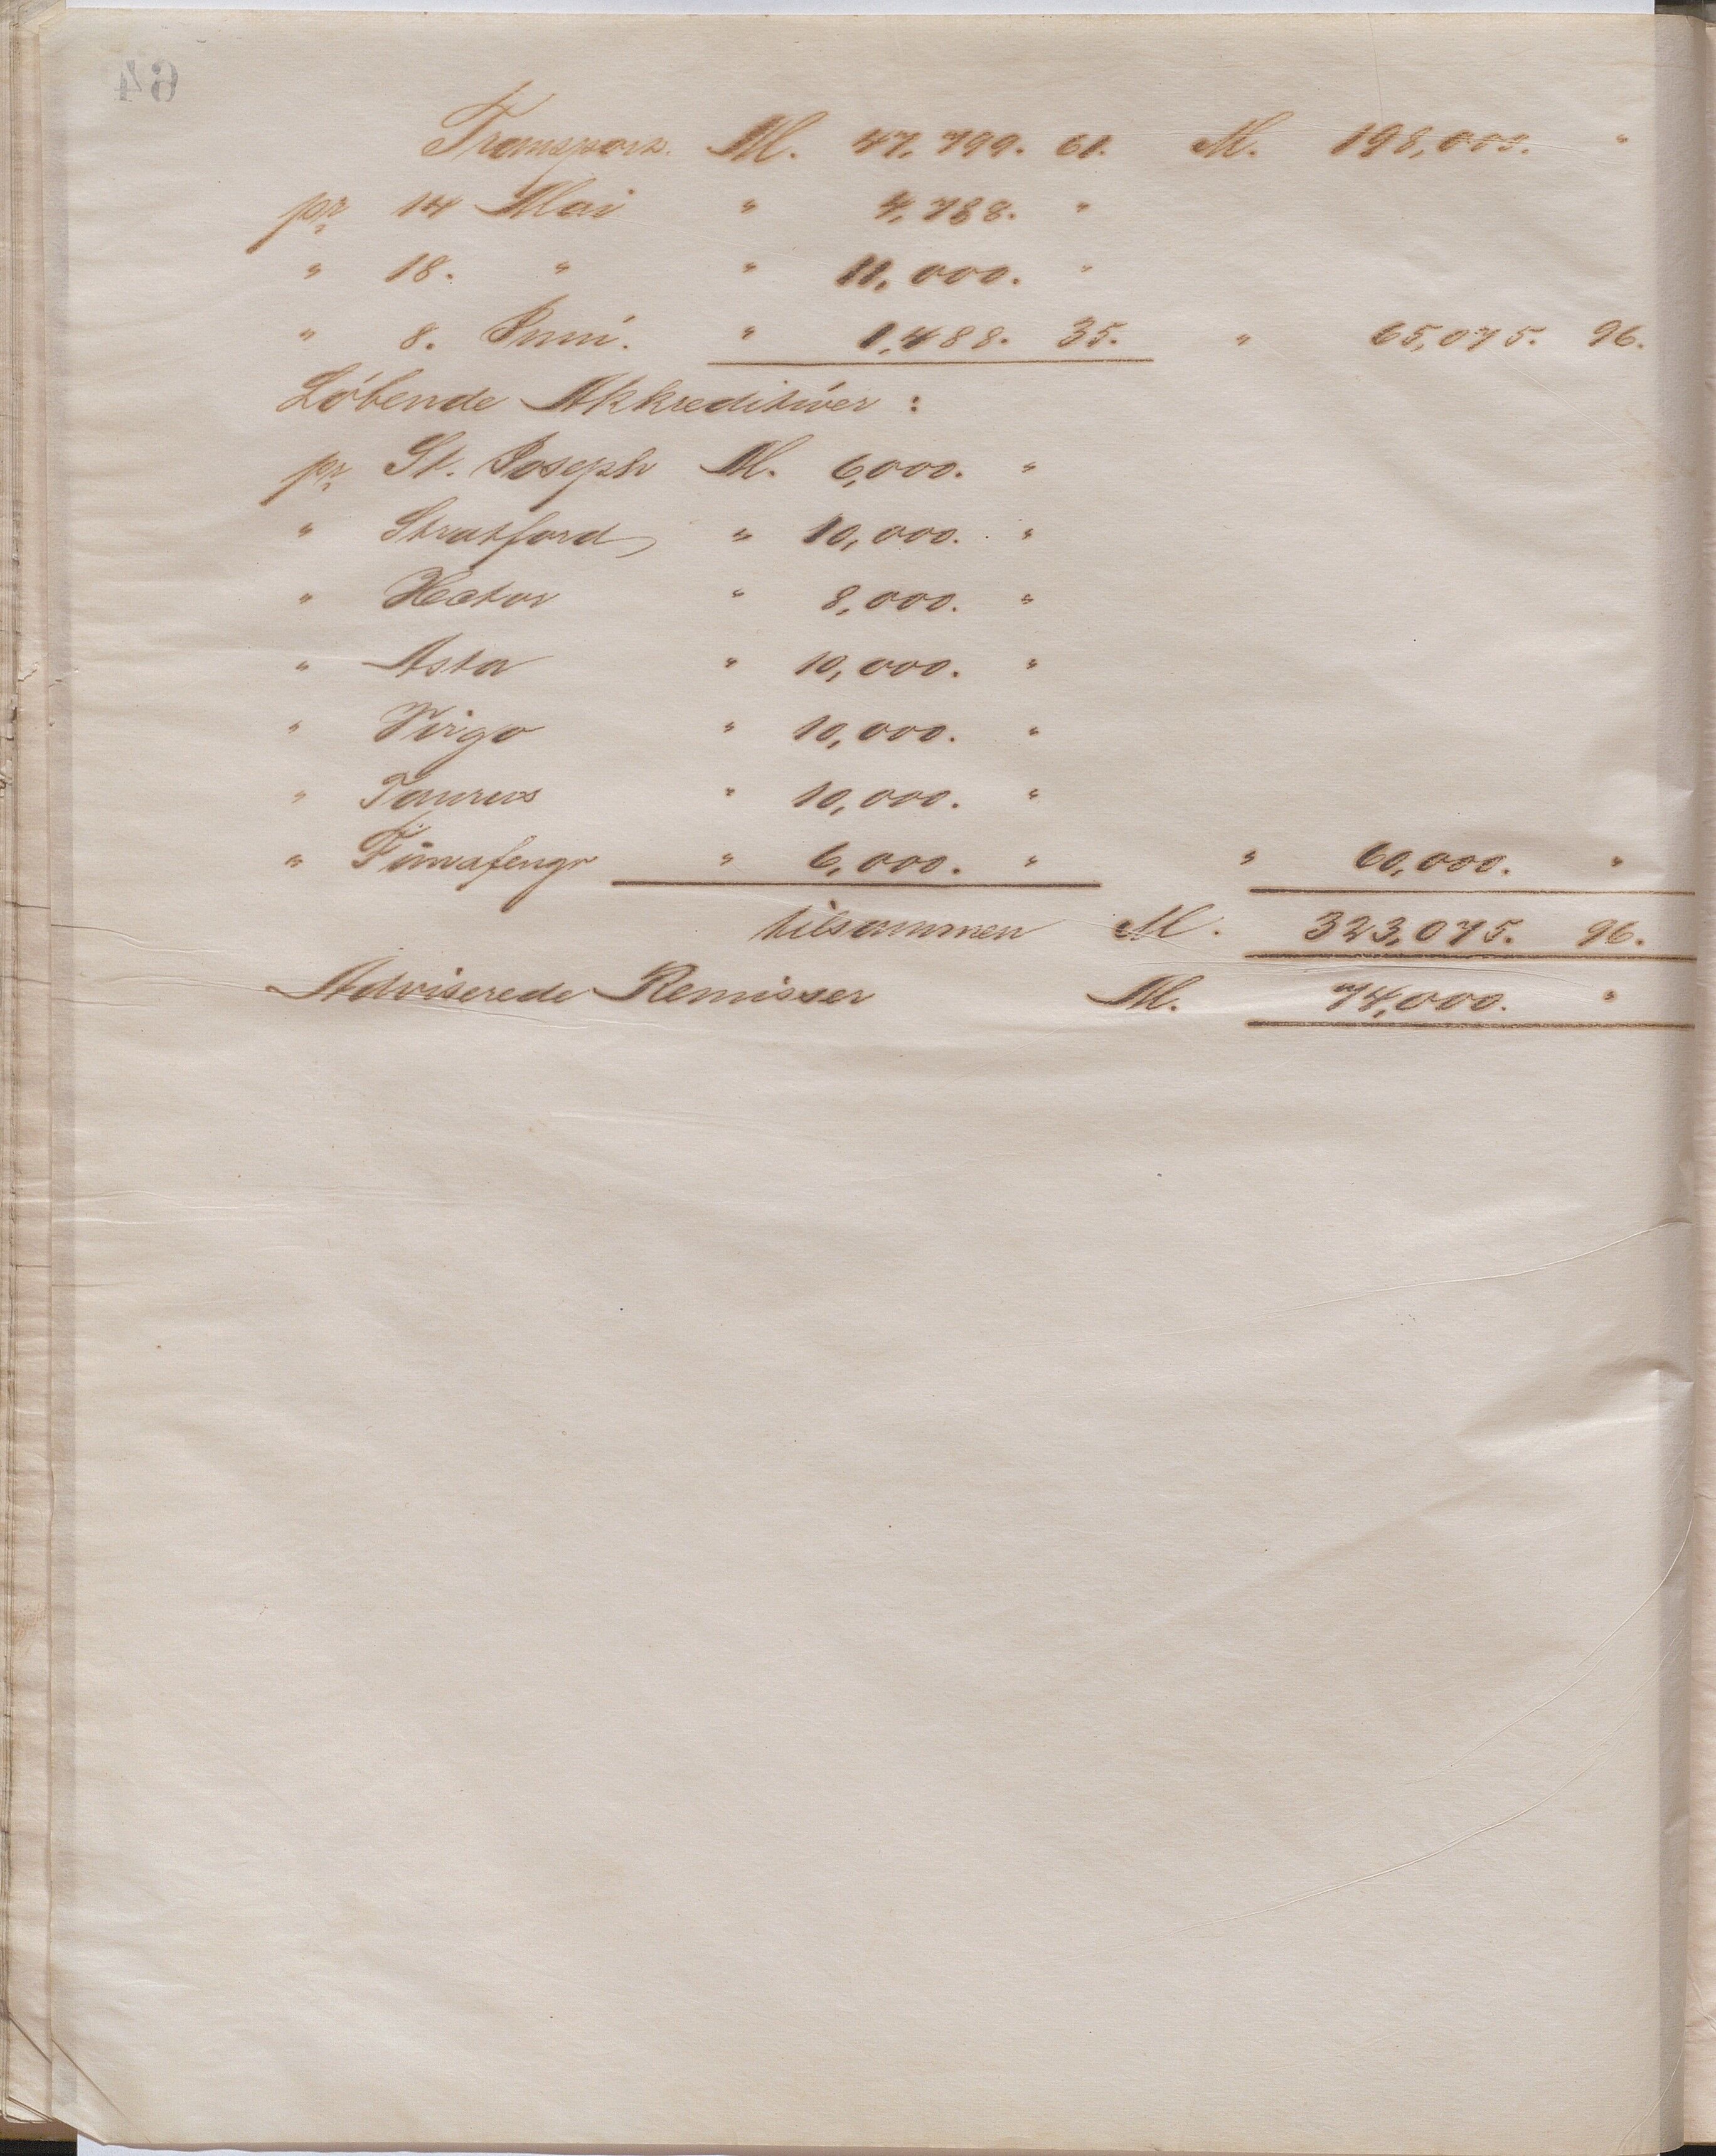 64
Transport. M. 47,799. 61. M. 198,000. "
pr 14 Mai " 4,788. "
" 18. " " 11,000. "
" 8. Juni. " 1,488. 35. " 65,075. 96.
Löbende Akkreditiver :
pr St. Joseph M. 6,000. "
" Stratford " 10,000. "
" Hector " 8,000. "
" Asta " 10,000. "
" Virgo " 10,000. "
" Taurus " 10,000. "
" Fimafengr " 6,000. " " 60,000. "
tilsammen M. 323,075. 96.
Adviserede Remisser M. 74,000. "